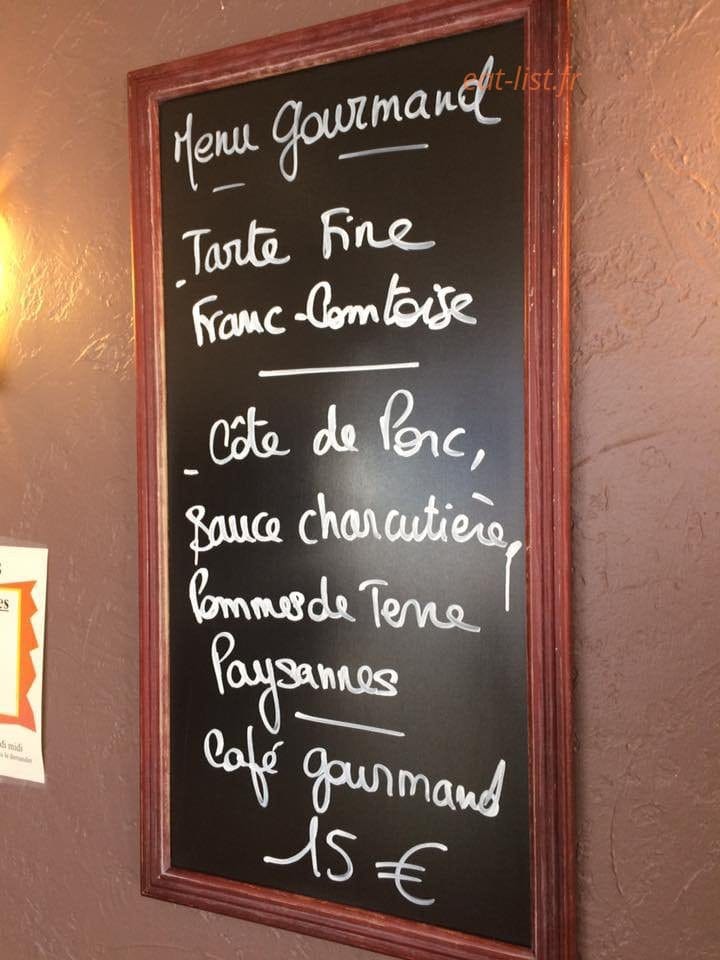 eat-list.fr
Menu Gourmand
- Tarte Fine
Franc-Comtoise
- Côte de Porc,
Sauce charcutière,
Pommes de Terre
Paysannes
Café gourmand
15 €
es
di midi